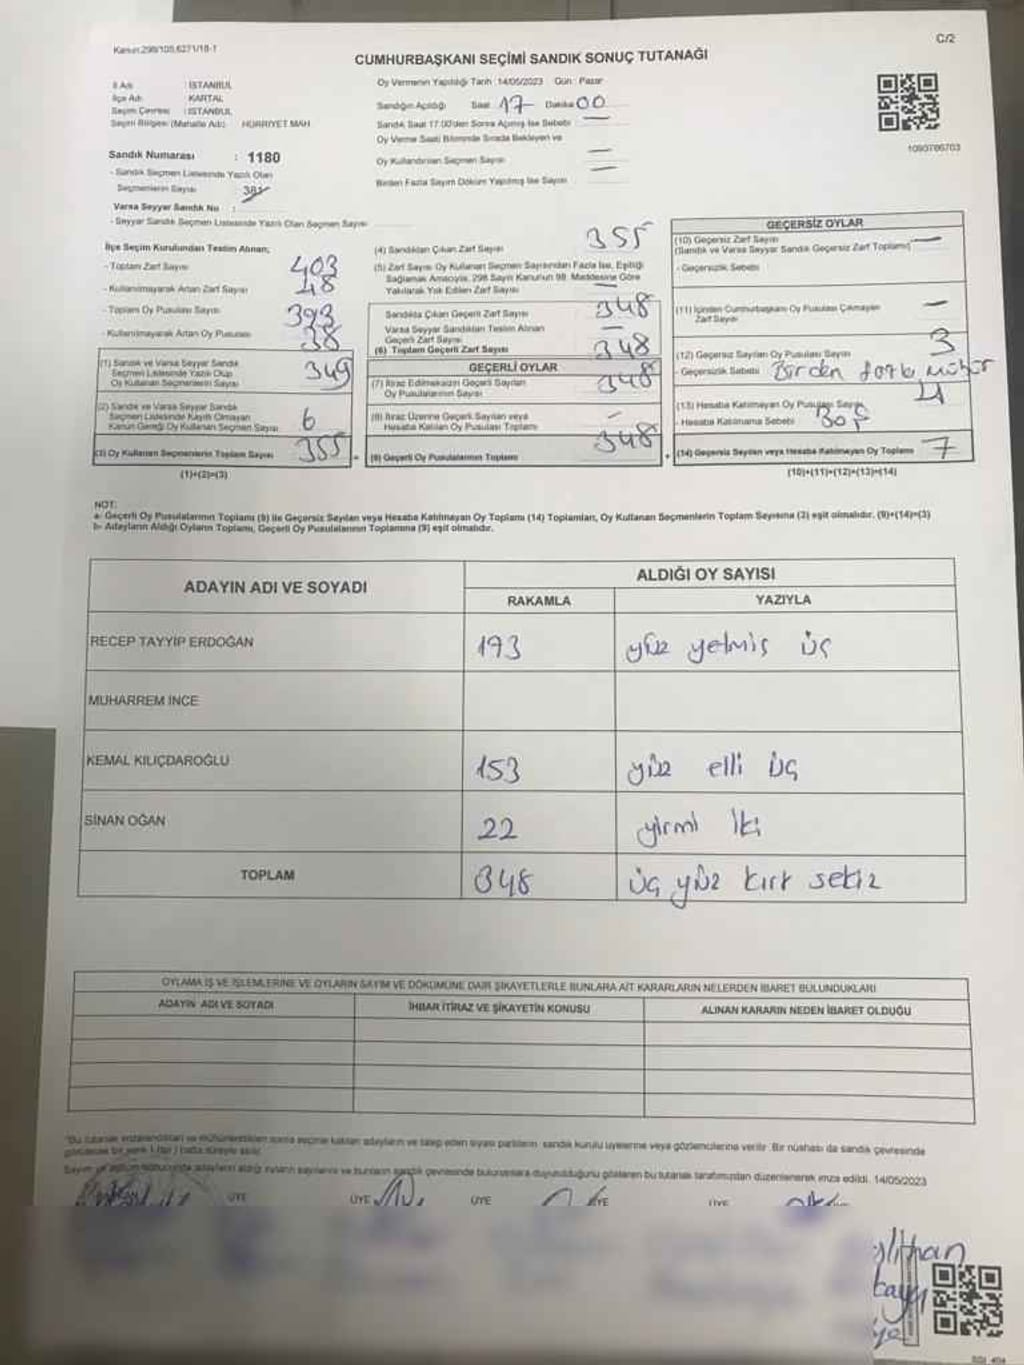 Kanun:298/105,6271/18-1
C/2
CUMHURBAŞKANI SEÇİMİ SANDIK SONUÇ TUTANAĞI
İl Adı : İSTANBUL
İlçe Adı : KARTAL
Seçim Çevresi : İSTANBUL
Seçim Bölgesi (Mahalle Adı) : HÜRRİYET MAH
Sandık Numarası : 1180
- Sandık Seçmen Listesinde Yazılı Olan
Seçmenlerin Sayısı : 381
Varsa Seyyar Sandık No :
- Seyyar Sandık Seçmen Listesinde Yazılı Olan Seçmen Sayısı
Oy Vermenin Yapıldığı Tarih :14/05/2023 Gün : Pazar
Sandığın Açıldığı Saat 17 Dakika 00
Sandık Saat 17.00'den Sonra Açılmış İse Sebebi —
Oy Verme Saati Bitiminde Sırada Bekleyen ve
Oy Kullandırılan Seçmen Sayısı —
Birden Fazla Sayım Döküm Yapılmış İse Sayısı —
1090786703
İlçe Seçim Kurulundan Teslim Alınan;
- Toplam Zarf Sayısı 403
- Kullanılmayarak Artan Zarf Sayısı 48
- Toplam Oy Pusulası Sayısı 393
- Kullanılmayarak Artan Oy Pusulası 38
(1) Sandık ve Varsa Seyyar Sandık
Seçmen Listesinde Yazılı Olup
Oy Kullanan Seçmenlerin Sayısı 349
(2) Sandık ve Varsa Seyyar Sandık
Seçmen Listesinde Kayıtlı Olmayan
Kanun Gereği Oy Kullanan Seçmen Sayısı 6
(3) Oy Kullanan Seçmenlerin Toplam Sayısı 355
(1)+(2)=(3)
(4) Sandıktan Çıkan Zarf Sayısı 355
(5) Zarf Sayısı Oy Kullanan Seçmen Sayısından Fazla İse, Eşitliği
Sağlamak Amacıyla, 298 Sayılı Kanunun 98. Maddesine Göre
Yakılarak Yok Edilen Zarf Sayısı —
Sandıkta Çıkan Geçerli Zarf Sayısı 348
Varsa Seyyar Sandıktan Teslim Alınan
Geçerli Zarf Sayısı —
(6) Toplam Geçerli Zarf Sayısı 348
GEÇERLİ OYLAR
(7) İtiraz Edilmeksizin Geçerli Sayılan
Oy Pusulalarının Sayısı 348
(8) İtiraz Üzerine Geçerli Sayılan veya
Hesaba Katılan Oy Pusulası Toplamı —
(9) Geçerli Oy Pusulalarının Toplamı 348
GEÇERSİZ OYLAR
(10) Geçersiz Zarf Sayısı —
(Sandık ve Varsa Seyyar Sandık Geçersiz Zarf Toplamı)
- Geçersizlik Sebebi
(11) İçinden Cumhurbaşkanı Oy Pusulası Çıkmayan —
Zarf Sayısı
(12) Geçersiz Sayılan Oy Pusulası Sayısı 3
- Geçersizlik Sebebi Birden fazla mühür
(13) Hesaba Katılmayan Oy Pusulası Sayısı 4
- Hesaba Katılmama Sebebi Boş
(14) Geçersiz Sayılan veya Hesaba Katılmayan Oy Toplamı 7
(10)+(11)+(12)+(13)=(14)
NOT:
a- Geçerli Oy Pusulalarının Toplamı (9) ile Geçersiz Sayılan veya Hesaba Katılmayan Oy Toplamı (14) Toplamları, Oy Kullanan Seçmenlerin Toplam Sayısına (3) eşit olmalıdır. (9)+(14)=(3)
b- Adayların Aldığı Oyların Toplamı, Geçerli Oy Pusulalarının Toplamına (9) eşit olmalıdır.
ADAYIN ADI VE SOYADI
ALDIĞI OY SAYISI
RAKAMLA YAZIYLA
RECEP TAYYİP ERDOĞAN 173 yüz yetmiş üç
MUHARREM İNCE
KEMAL KILIÇDAROĞLU 153 yüz elli üç
SİNAN OĞAN 22 yirmi iki
TOPLAM 348 üç yüz kırk sekiz
OYLAMA İŞ VE İŞLEMLERİNE VE OYLARIN SAYIM VE DÖKÜMÜNE DAİR ŞİKAYETLERLE BUNLARA AİT KARARLARIN NELERDEN İBARET BULUNDUKLARI
ADAYIN ADI VE SOYADI İHBAR İTİRAZ VE ŞİKAYETİN KONUSU ALINAN KARARIN NEDEN İBARET OLDUĞU
"Bu tutanak imzalandıktan ve mühürlendikten sonra seçime katılan adayların ve talep eden siyasi partilerin sandık kurulu üyelerine veya gözlemcilerine verilir. Bir nüshası da sandık çevresinde
Sayım ve döküm sonucunda adayların aldığı oyların sayılarını ve bunların sandık çevresinde bulunanlara duyurulduğunu gösteren bu tutanak tarafımızdan düzenlenerek imza edildi. 14/05/2023
ÜYE ÜYE ÜYE ÜYE ÜYE